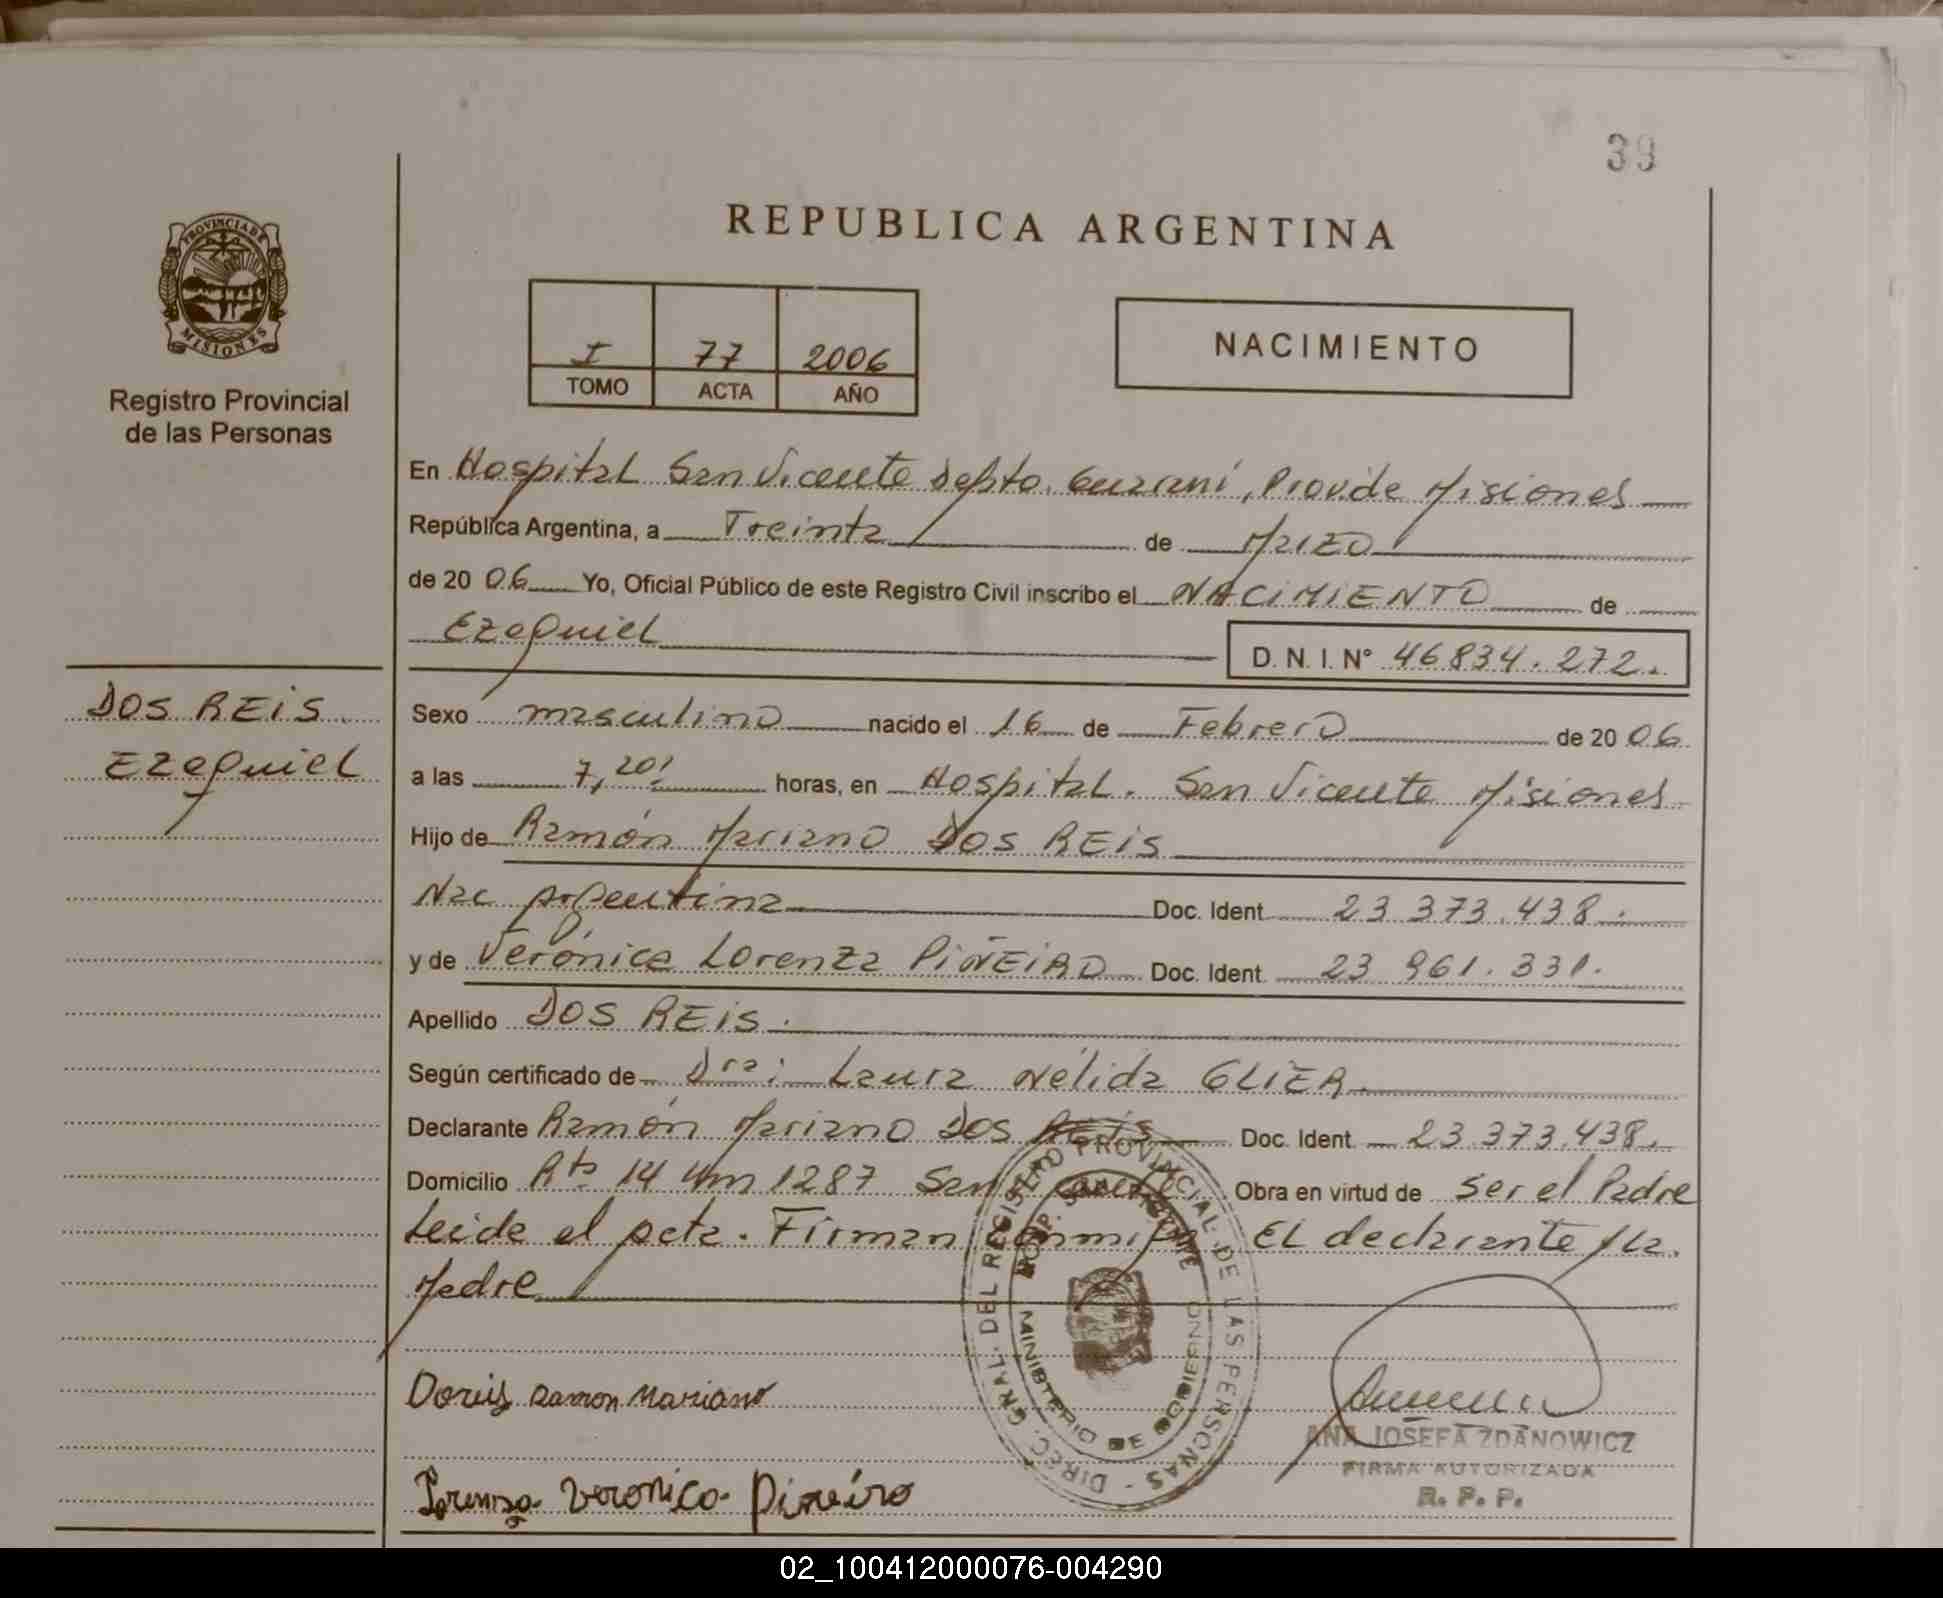 39
REPUBLICA ARGENTINA
PROVINCIA DE
MISIONES
Registro Provincial
de las Personas
I 77 2006
TOMO ACTA AÑO
NACIMIENTO
En Hospital San Vicente Depto. Guaraní, Prov de Misiones
República Argentina, a Treinta de Marzo
de 2006 Yo, Oficial Público de este Registro Civil inscribo el NACIMIENTO de
Ezequiel D.N.I. Nº 46834.272.
DOS REIS
Ezequiel
Sexo masculino nacido el 16 de Febrero de 2006
a las 7,20' horas, en Hospital. San Vicente Misiones
Hijo de Ramón Mariano DOS REIS
Nac Argentina Doc. Ident. 23 373.438.
y de Verónica Lorenza PIÑEIRO Doc. Ident. 23 961.331.
Apellido DOS REIS.
Según certificado de Dra: Laura Nélida GLIER
Declarante Ramón Mariano DOS REIS Doc. Ident. 23.373.438.
Domicilio Rta 14 Km 1287 San Vicente Obra en virtud de ser el Padre
Leida el acta. Firman conmigo El declarante y la
Madre
DIREC. GRAL. DEL REGISTRO PROVINCIAL DE LAS PERSONAS
MINISTERIO DE GOBIERNO
Ramon Mariano
Lorenza Veronica Pineiro
ANA JOSEFA ZDANOWICZ
FIRMA AUTORIZADA
R. P. P.
02_100412000076-004290